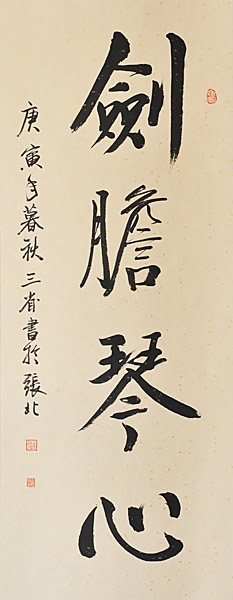 劍膽琴心
庚寅年暮秋三省書於張北